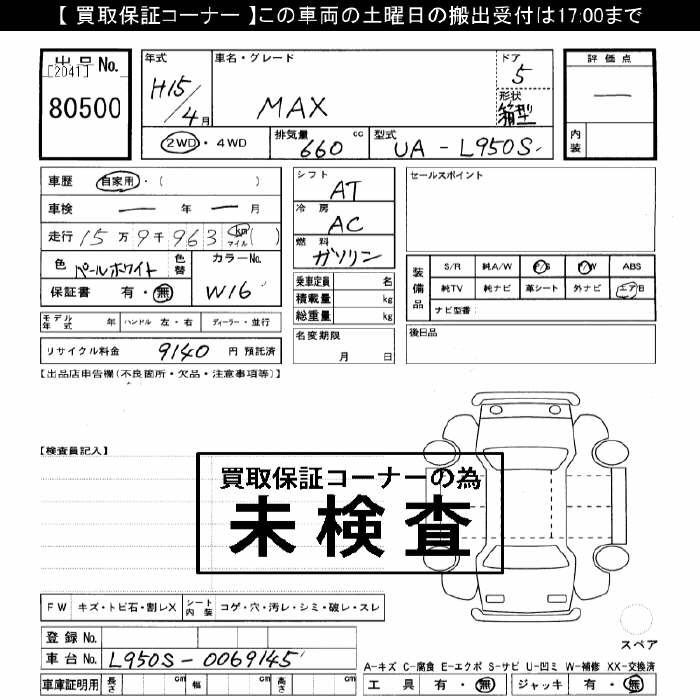 【 買取保証コーナー 】この車両の土曜日の搬出受付は17:00まで
出品 No.
[2041]
80500
年式
H15/4月
車名・グレード
MAX
ドア
5
形状
箱型
評価点
—
内装
2WD・4WD
排気量 660 cc
型式 UA-L950S
車歴 自家用・( )
車検 — 年 — 月
走行 15万9千963 km マイル ( )
色 パールホワイト 色替
カラーNo. W16
保証書 有・無
モデル年式 年 ハンドル 左・右 ディーラー・並行
リサイクル料金 9140 円 預託済
シフト AT
冷房 AC
燃料 ガソリン
乗車定員 名
積載量 kg
総重量 kg
名変期限
月 日
セールスポイント
装備品
S/R 純A/W P/S P/W ABS
純TV 純ナビ 革シート 外ナビ エアB
ナビ型番:
後日品
【出品店申告欄(不良箇所・欠品・注意事項等)】
【検査員記入】
買取保証コーナーの為
未検査
FW キズ・トビ石・割レX シート内装 コゲ・穴・汚レ・シミ・破レ・スレ
登録 No.
車台 No. L950S-0069145
車庫証明用 長さ cm 幅 cm 高さ cm
スペア
A-キズ C-腐食 E-エクボ S-サビ U-凹ミ W-補修 XX-交換済
工具 有・無 ジャッキ 有・無